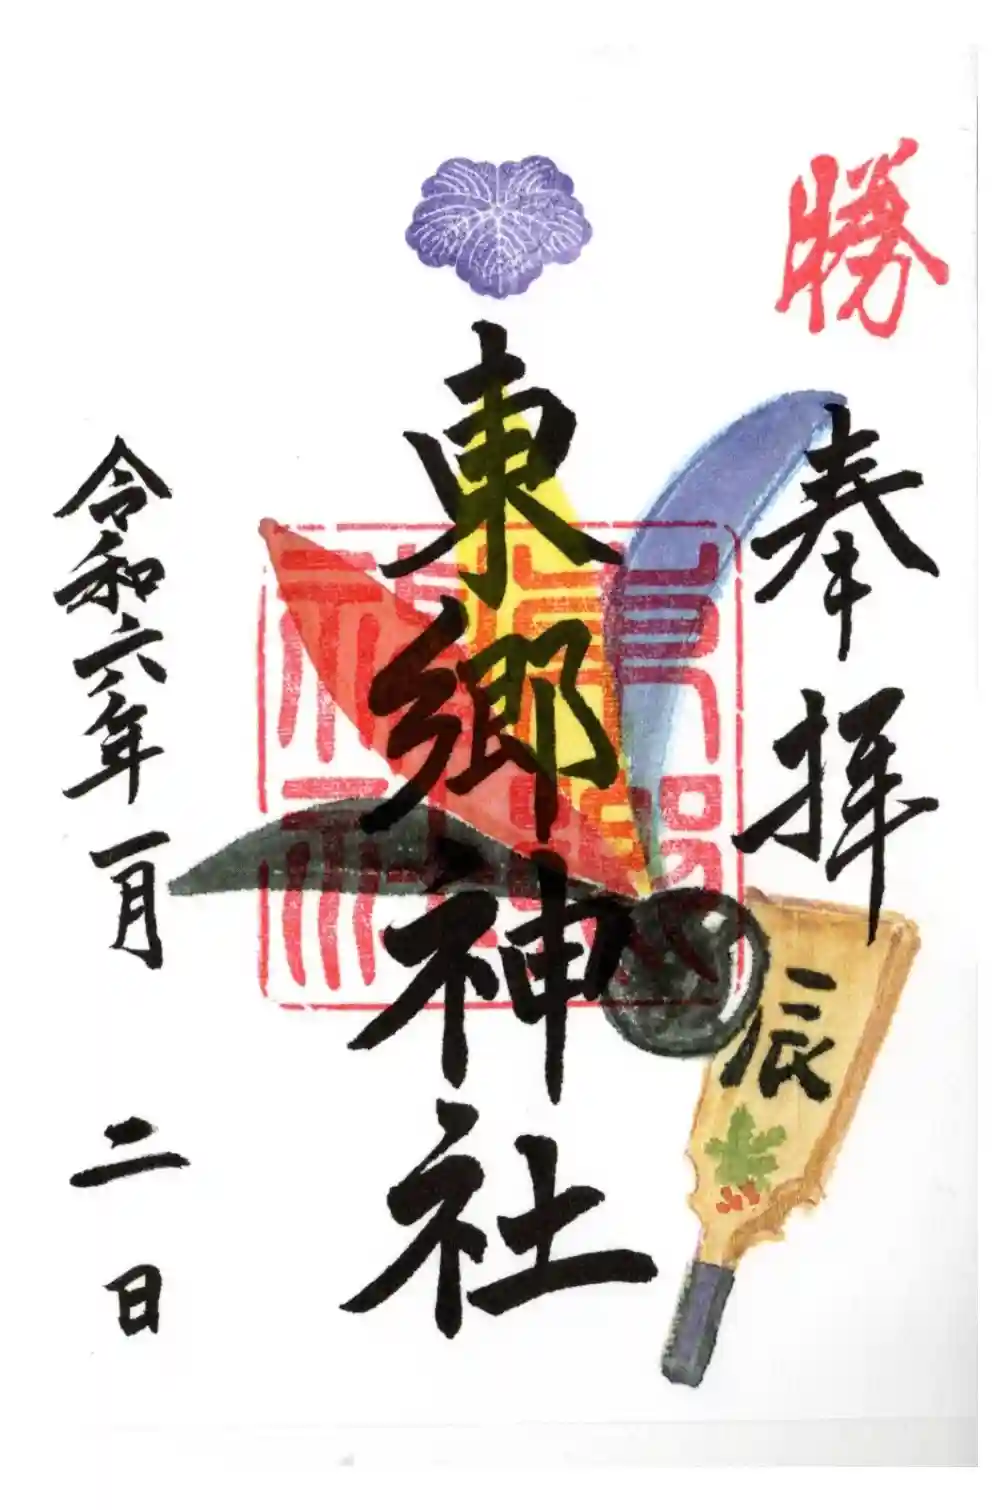 勝
奉拝
辰
東郷神社
令和六年一月二日